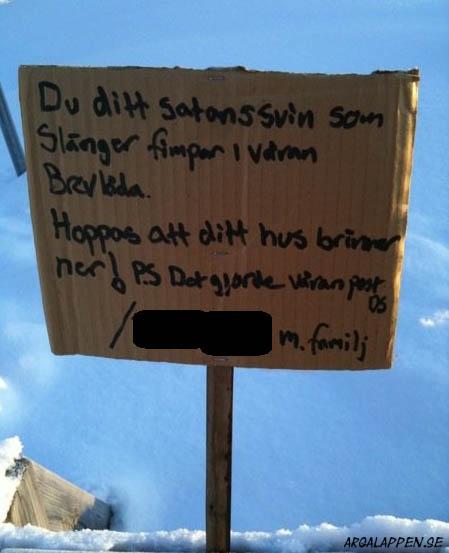 Du ditt satanssvin som
Slänger fimpar i våran
Brevlåda.
Hoppas att ditt hus brinner
ner! P.S Det gjorde våran post
DS
/ m. familj
ARGALAPPEN.SE